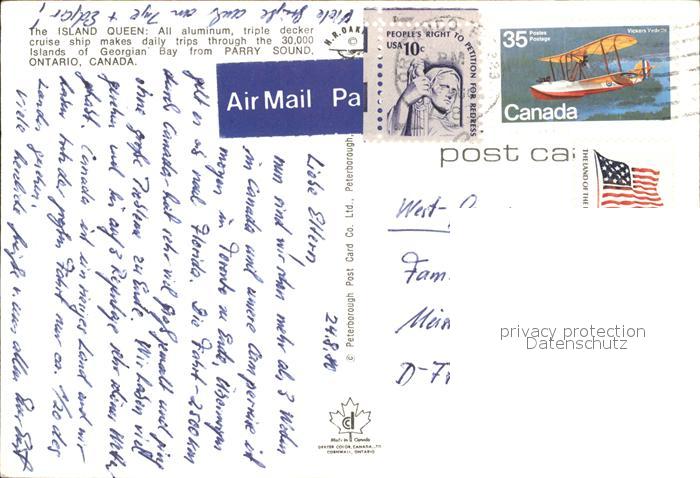 The ISLAND QUEEN: All aluminum, triple decker
cruise ship makes daily trips through the 30,000
Islands of Georgian Bay from PARRY SOUND,
ONTARIO, CANADA.
Air Mail Pa
PEOPLE'S RIGHT TO PETITION FOR REDRESS
USA 10c
35 Postes Postage
Vickers Vedette
Canada
post ca
THE LAND OF THE
© Peterborough Post Card Co. Ltd., Peterborough,
Made in Canada
DEXTER COLOR, CANADA
CORNWALL, ONTARIO
24.8.80
Liebe Eltern,
nun sind wir schon mehr als 3 Wochen
in Canada und unsere Camperreise ist
morgen in Toronto zu Ende. Übermorgen
geht es nach Florida. Die Fahrt - 2500 km
durch Canada - hat sehr viel Spaß gemacht und ging
ohne große Probleme zu Ende. Wir haben viel
gesehen und bis auf 3 Regentage sehr schönes Wetter
gehabt. Canada ist ein riesiges Land und wir
haben trotz der großen Fahrt nur ca. 1/20 des
Landes gesehen.
Viele herzliche Grüße
Viele Grüße auch an Inge + Edgar!
West-
Fam.
D-
privacy protection
Datenschutz